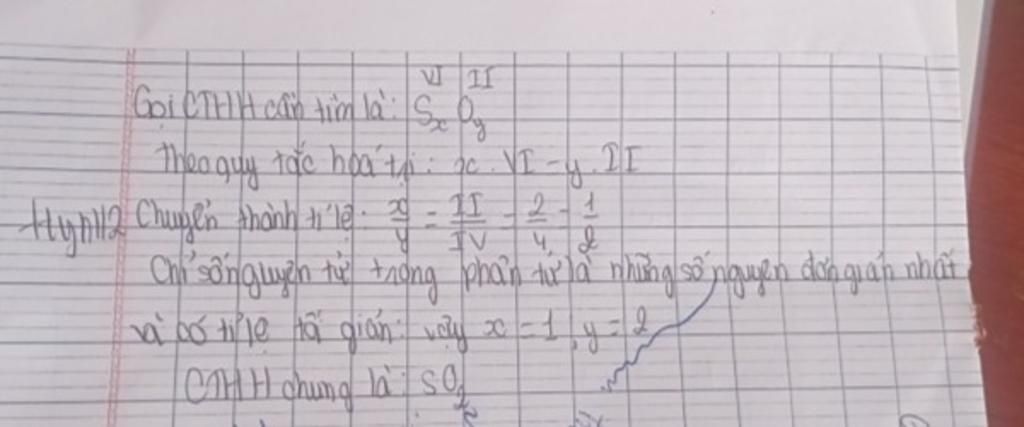 VI II
Gọi CTHH cần tìm là: SxOy
Theo quy tắc hoá trị: x. VI = y. II
Chuyển thành tỉ lệ: x/y = II/IV = 2/4 = 1/2
Chỉ số nguyên tử trong phân tử là những số nguyên đơn giản nhất
và có tỉ lệ tối giản: vậy x = 1, y = 2
CTHH chung là: SO2